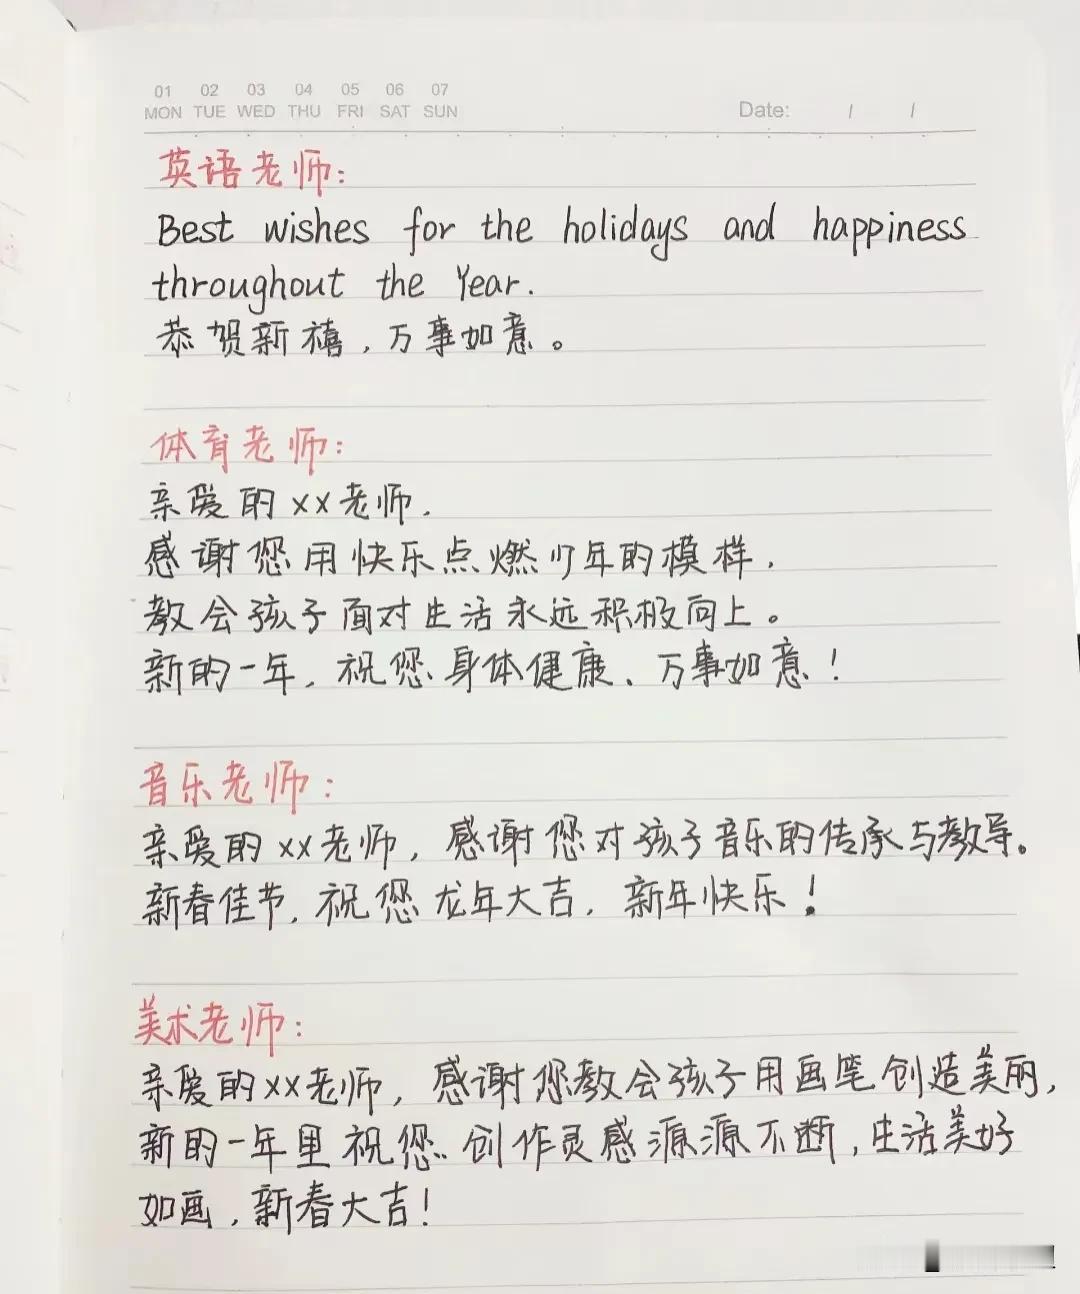 01 02 03 04 05 06 07
MON TUE WED THU FRI SAT SUN Date: / /
英语老师:
Best wishes for the holidays and happiness
throughout the Year.
恭贺新禧,万事如意。
体育老师:
亲爱的xx老师,
感谢您用快乐点燃少年的模样,
教会孩子面对生活永远积极向上。
新的一年,祝您身体健康、万事如意!
音乐老师:
亲爱的xx老师,感谢您对孩子音乐的传承与教导。
新春佳节,祝您龙年大吉,新年快乐!
美术老师:
亲爱的xx老师,感谢您教会孩子用画笔创造美丽,
新的一年里祝您创作灵感源源不断,生活美好
如画,新春大吉!